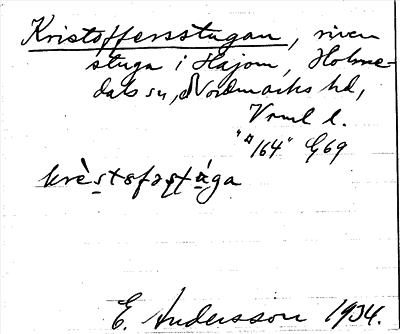 Kristoffersstugan, riven
stuga i Hajom, Holme-
dals sn, Nordmarks hd,
Vrml l.
"¤164" G69
krèstofəṣtúga
E. Andersson 1934.